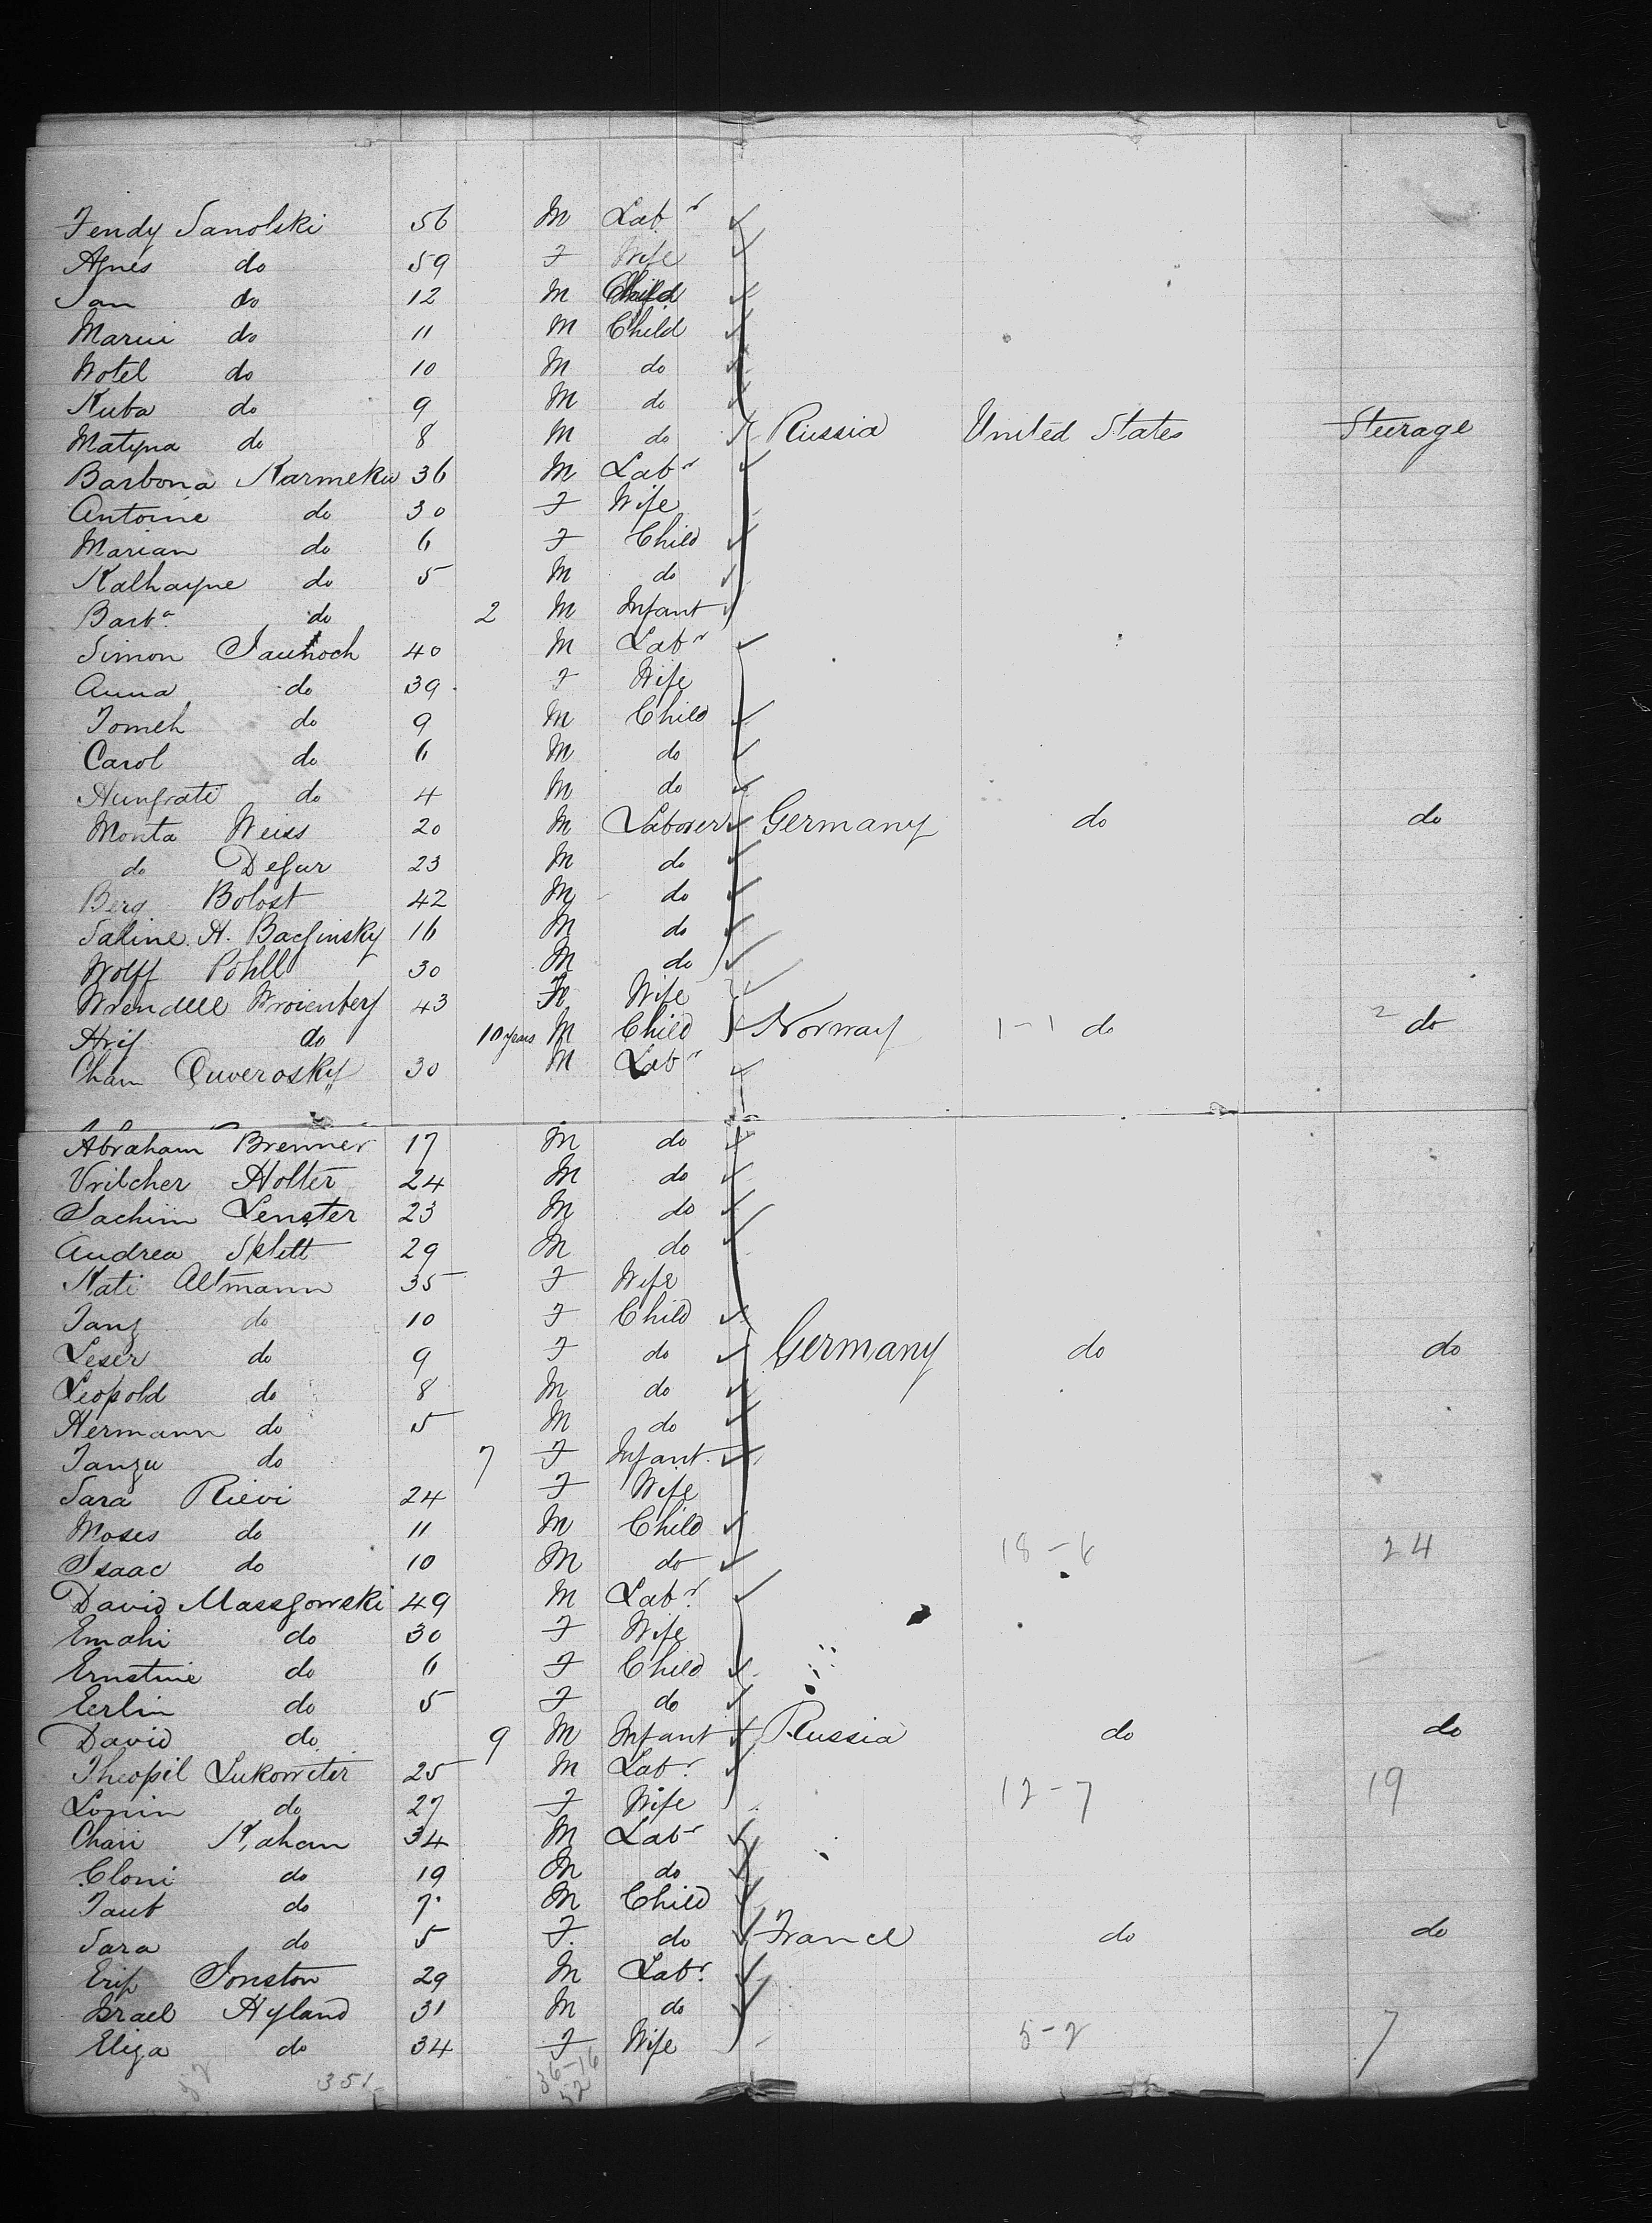 Fendy Sanolski 56 M Labr
Agnes do 59 F Wife
Jan do 12 M Child
Marui do 11 M Child
Wotel do 10 M do
Kuba do 9 M do
Matyna do 8 M do Russia United States Steerage
Barbona Karmeku 36 M Labr
Antoine do 30 F Wife
Marian do 6 F Child
Kalhayne do 5 M do
Barba do 2 M Infant
Simon 40 M Labr
Anna do 39 F Wife
Tomeh do 9 M Child
Carol do 6 M do
do 4 M do
Monta Weiss 20 M Laborer Germany do do
do Defur 23 M do
Berg Bolost 42 M do
Saline. H. Bacfinsky 16 M do
Wolff Pohll 30 M do
43 F Wife
do 10 years M Child Norway 1-1 do 2 do
Cham 30 M Labr
Abraham Brenner 17 M do
Vrilcher Holter 24 M do
Jachim Lenster 23 M do
Andrea Splett 29 M do
Kati Altmann 35 F Wife
Janz do 10 F Child
Leser do 9 F do Germany do do
Leopold do 8 M do
Hermann do 5 M do
Janzu do 7 F Infant
Sara Rievi 24 F Wife
Moses do 11 M Child
Isaac do 10 M do 18-6 24
David Massgowski 49 M Labr
Emahi do 30 F Wife
Ernstine do 6 F Child
Eerlin do 5 F do
David do 9 M Infant Russia do do
Theopil Lukowiter 25 M Labr
Lonin do 27 F Wife 12-7 19
Chaii Kaham 34 M Labr
Cloni do 19 M do
Taub do 7 M Child
Sara do 5 F. do France do do
Erip Jonston 29 M Labr
Israel Hyland 31 M do
Eliza do 34 F Wife 5-2 7
52 351 36-16
52